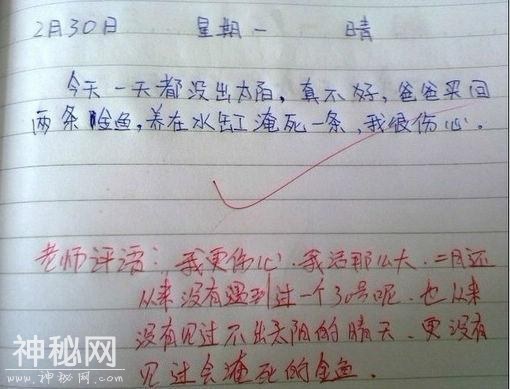 2月30日 星期一 晴
今天一天都没出太阳，真不好，爸爸买回
两条金鱼，养在水缸淹死一条，我很伤心。
老师评语：我更伤心．我活那么大．二月还
从来没有遇到过一个30号呢．也从来
没有见过不出太阳的晴天．更没有
见过会淹死的金鱼．
神秘网
www.神秘网.com